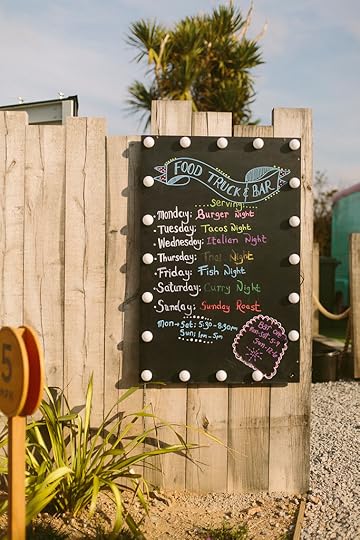 FOOD TRUCK & BAR
Serving
Monday: Burger Night
Tuesday: Tacos Night
Wednesday: Italian Night
Thursday: Thai Night
Friday: Fish Night
Saturday: Curry Night
Sunday: Sunday Roast
Mon → Sat: 5:30 - 8:30pm
Sun: 1pm - 5pm
BAR OPEN
Mon-Sat: 5-9
Sun: 12-6
5